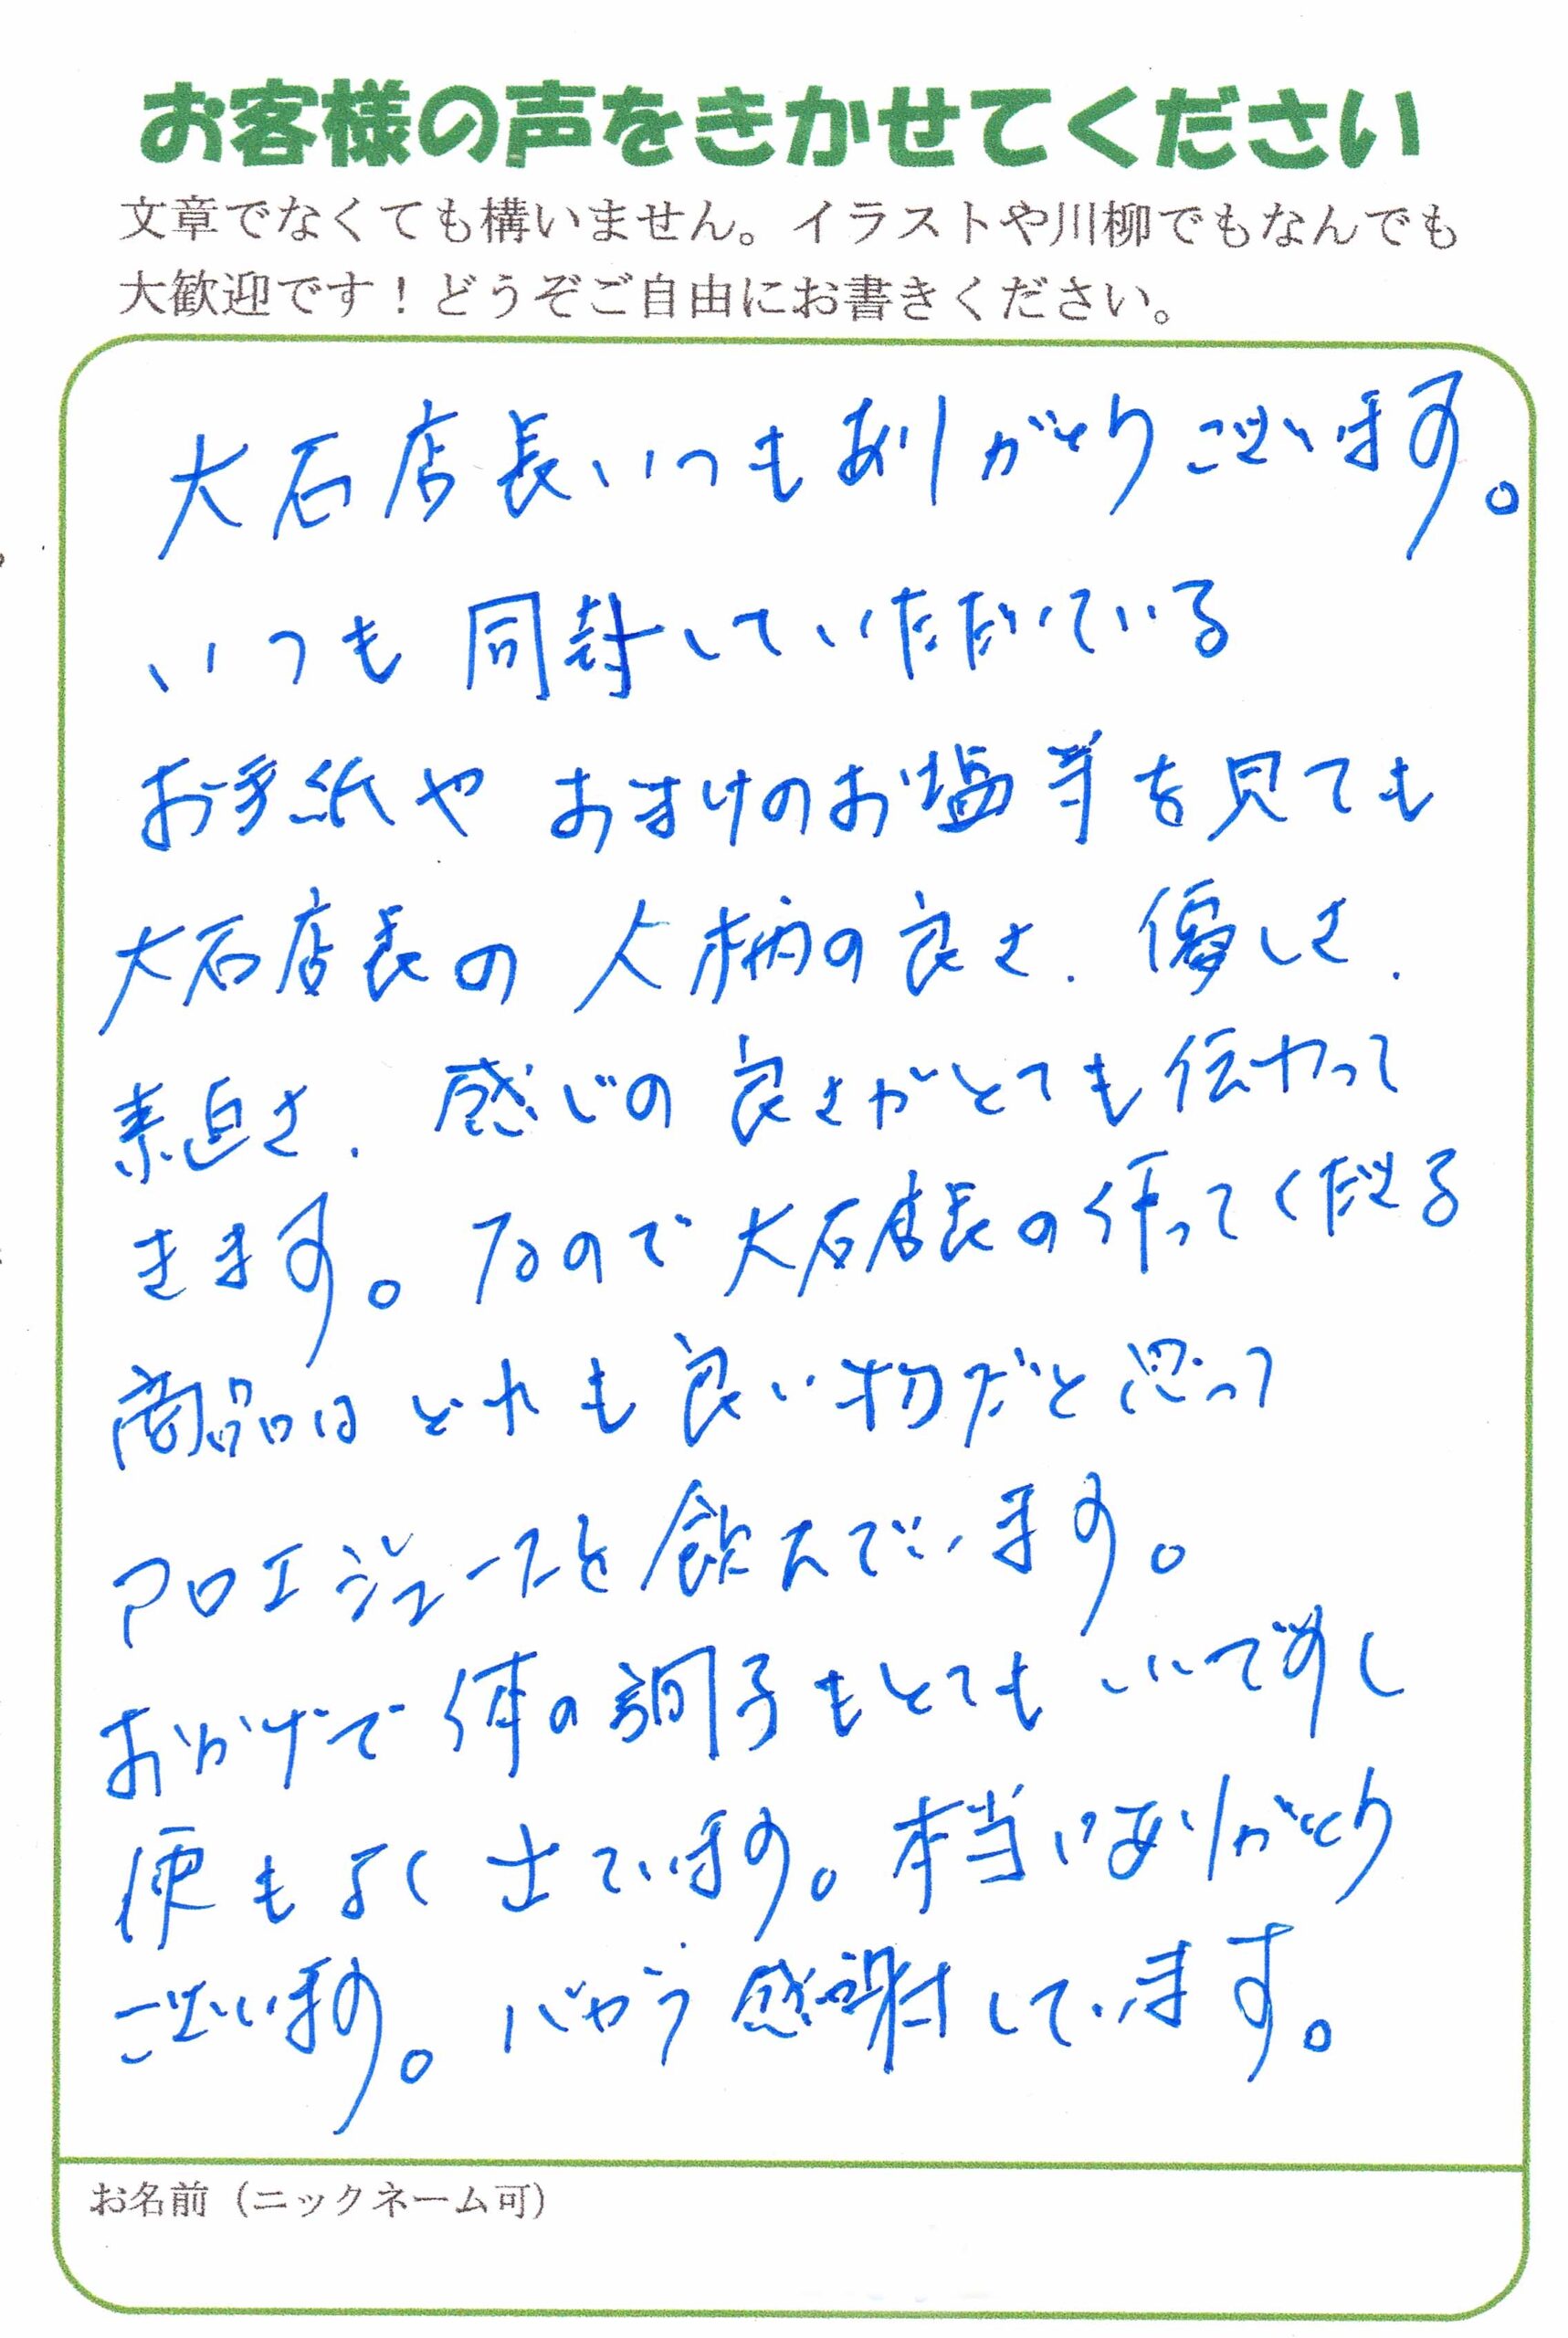 お客様の声をきかせてください
文章でなくても構いません。イラストや川柳でもなんでも
大歓迎です！どうぞご自由にお書きください。
大石店長いつもありがとうございます。
いつも同封していただいている
お手紙や おまけのお塩等を見ても
大石店長の 人柄の良さ、優しさ、
素直さ、感じの良さがとても伝わって
きます。なので大石店長の作ってくださる
商品はどれも良い物だと思って
アロエジュースを飲んでいます。
おかげで体の調子もとてもいいですし
便もよく出ています。本当にありがとう
ございます。いつも感謝しています。
お名前（ニックネーム可）